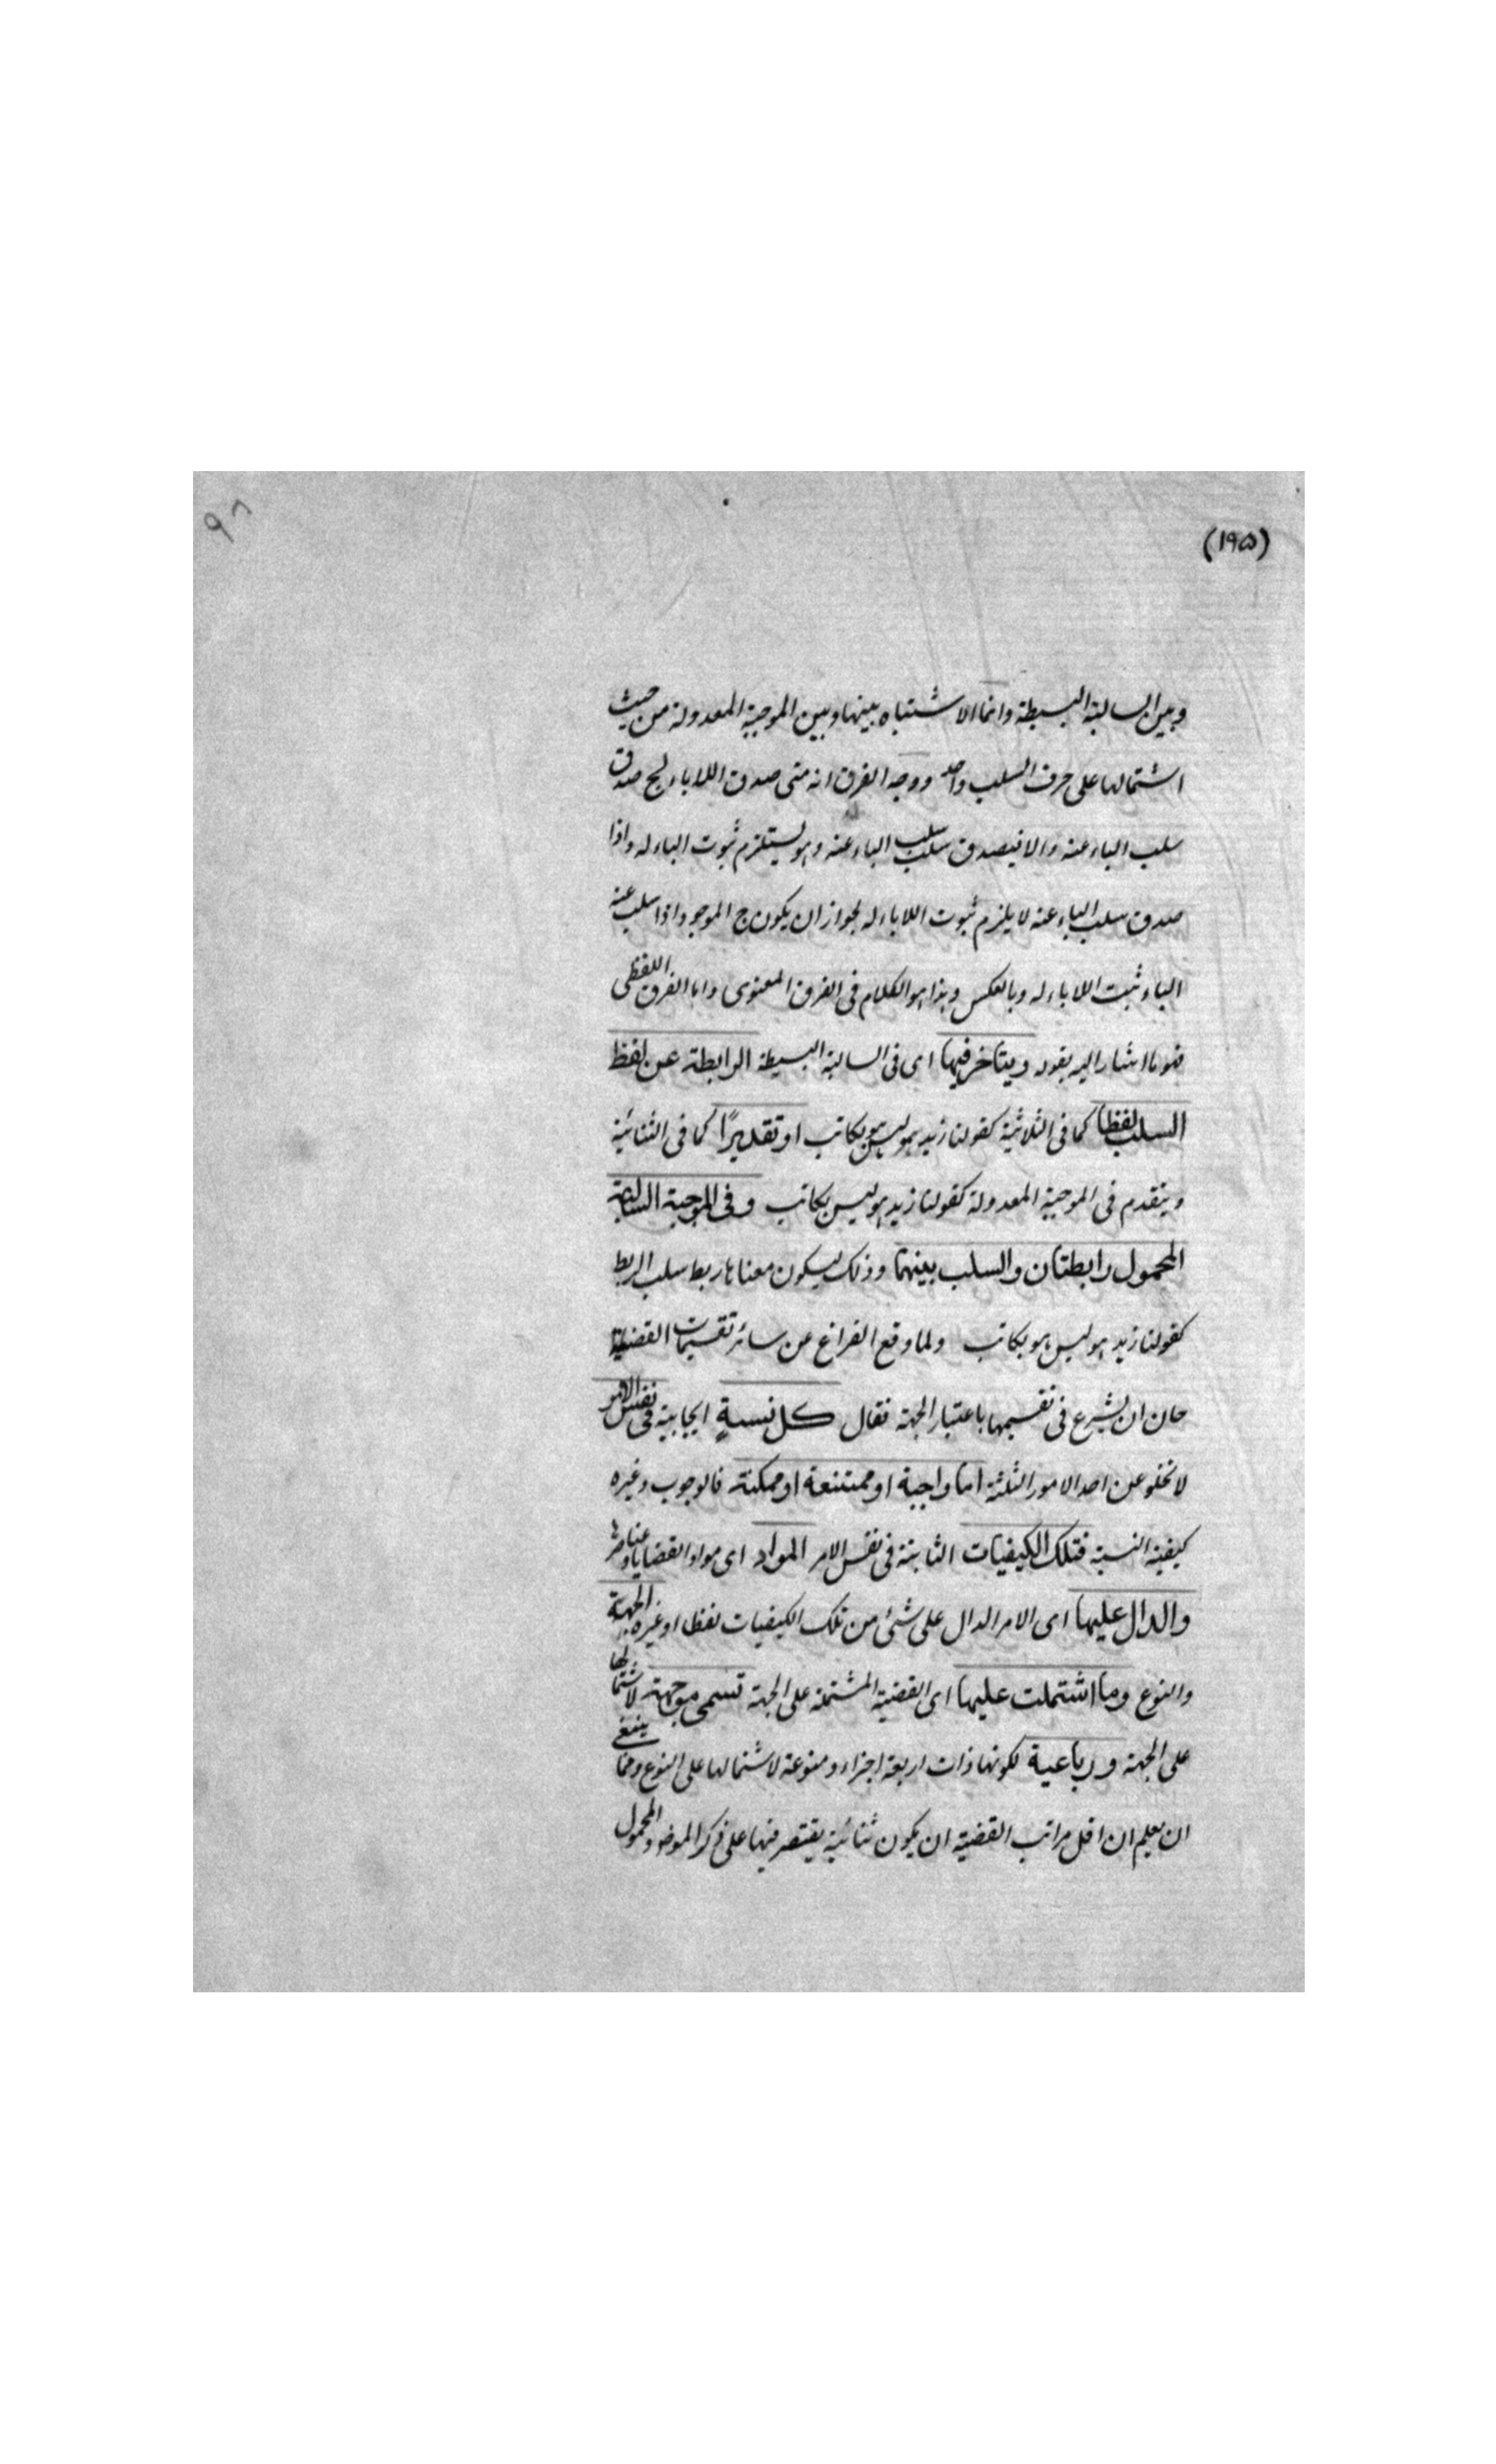 (۱۹۵)
۹۸
وبين السالبة البسيطة وانما الاشتباه بينها وبين الموجبة المعدولة من حيث
اشتمالها على حرف السلب واحد ووجه الفرق انه متى صدق اللاباء لج صدق
سلب الباء عنه والا فيصدق سلب سلب الباء عنه وهو يستلزم ثبوت الباء له واذا
صدق سلب الباء عنه لا يلزم ثبوت اللاباء له لجواز ان يكون ج الموجود اذا سلب عنه
الباء ثبت اللاباء له وبالعكس وهذا هو الكلام فى الفرق المعنوى واما الفرق اللفظى
فهو ما اشار اليه بقوله ويتاخر فيها اى فى السالبة البسيطة الرابطة عن لفظ
السلب لفظا كما فى الثلاثية كقولنا زيد ليس هو بكاتب او تقديرًا كما فى الثنائية
ويتقدم فى الموجبة المعدولة كقولنا زيد هو ليس بكاتب وفى الموجبة السالبة
المحمول رابطتان والسلب بينهما وذلك ليكون معناها ربط سلب الربط
كقولنا زيد هو ليس هو بكاتب ولما وقع الفراغ عن سائر تقسيمات القضية
حان ان يشرع فى تقسيمها باعتبار الجهة فقال كل نسبةٍ ايجابية فى نفس الامر
لا تخلو عن احد الامور الثلثة اما واجبة او ممتنعة او ممكنة فالوجوب وغيره
كيفية النسبة فتلك الكيفيات الثابتة فى نفس الامر المواد اى مواد القضايا وعناصرها
والدال عليها اى الامر الدال على شئ من تلك الكيفيات لفظا او غيره الجهة
والنوع وما اشتملت عليها اى القضية المشتملة على الجهة تسمى موجهة لاشتمالها
على الجهة ورباعية لكونها ذات اربعة اجزاء ومنوعة لاشتمالها على النوع ومما ينبغى
ان يعلم ان اقل مراتب القضية ان يكون ثنائية يقتصر فيها على ذكر الموضوع والمحمول